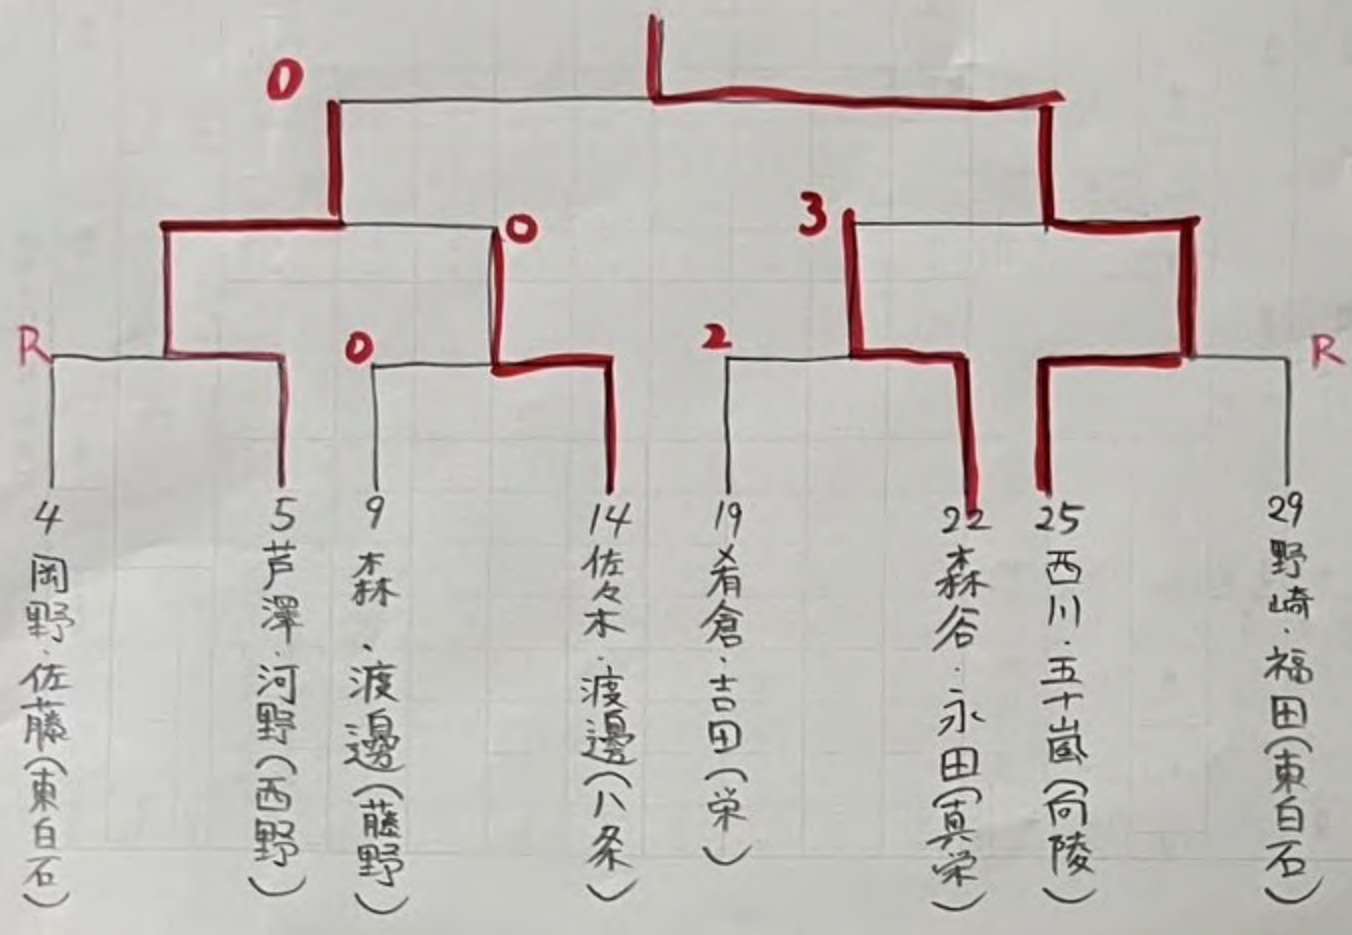 0
0
3
R
0
2
R
4 岡野・佐藤(東白石)
5 芦澤・河野(西野)
9 森・渡邊(藤野)
14 佐々木・渡邊(八条)
19 肴倉・吉田(栄)
22 森谷・永田(真栄)
25 西川・五十嵐(向陵)
29 野崎・福田(東白石)